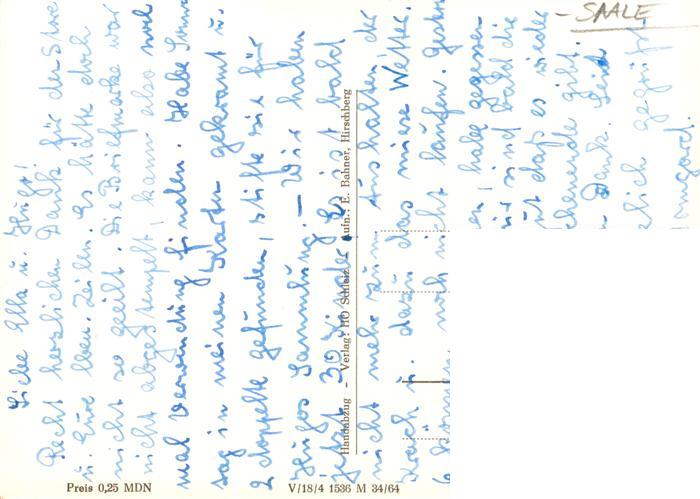 – SAALE
Liebe Ella u. Hugo!
Recht herzlichen Dank für
u. Eure lben. Zeilen. Es hätte doch
nicht so geeilt. Die Briefmarke war
nicht abgestempelt, kann also noch
mal Verwendung finden. Habe
tag in meinen Karten gekramt u.
2 doppelte gefunden, stifte sie für
Hugos Sammlung. – Wir haben
jetzt 30 Kinder, es ist bald
nicht mehr zum Aushalten der
Krach u. dazu das miese Wetter.
können noch nicht laufen.
habe gegessen
sind bald die
daß es wieder
chenende gibt.
Dank. Seid
zlich
Irmgard.
Handabzug – Verlag: HO Schleiz – Aufn.: E. Bahner, Hirschberg
Preis 0,25 MDN
V/18/4 1536 M 34/64